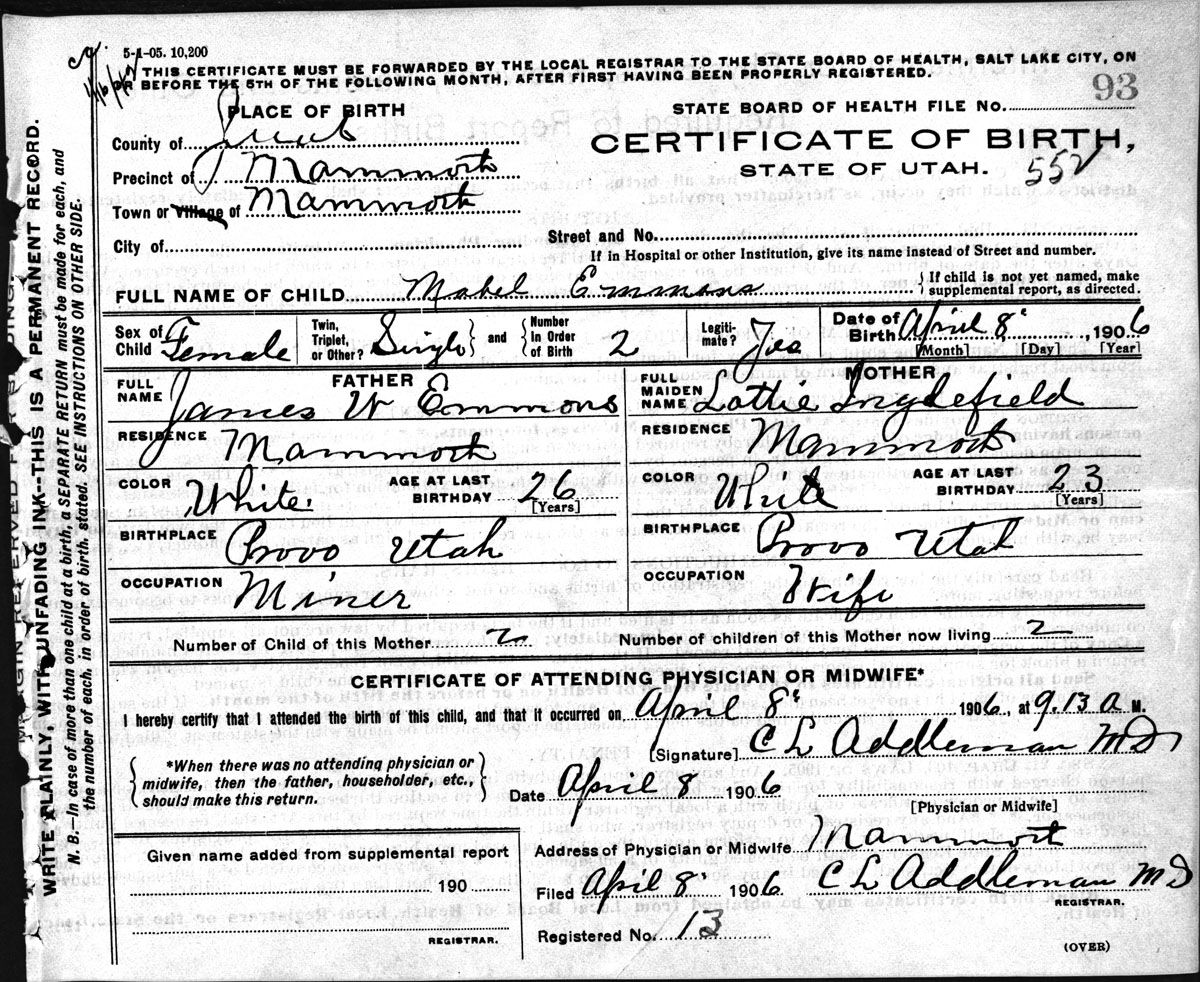 5-1-05. 10,200
THIS CERTIFICATE MUST BE FORWARDED BY THE LOCAL REGISTRAR TO THE STATE BOARD OF HEALTH, SALT LAKE CITY, ON
OR BEFORE THE 5TH OF THE FOLLOWING MONTH, AFTER FIRST HAVING BEEN PROPERLY REGISTERED.
93
PLACE OF BIRTH
STATE BOARD OF HEALTH FILE NO.
County of Juab
CERTIFICATE OF BIRTH,
Precinct of Mammoth
STATE OF UTAH. 552
Town or Village of Mammoth
City of
Street and No.
If in Hospital or other Institution, give its name instead of Street and number.
FULL NAME OF CHILD Mabel Emmons { If child is not yet named, make
supplemental report, as directed.
Sex of Child Female
Twin, Triplet, or Other? Single } and { Number In Order of Birth 2
Legiti- mate? Yes
Date of Birth April 8 , 1906
[Month] [Day] [Year]
FATHER
FULL NAME James W Emmons
MOTHER
FULL MAIDEN NAME Lottie Inglefield
RESIDENCE Mammoth
RESIDENCE Mammoth
COLOR White AGE AT LAST BIRTHDAY 26 [Years]
COLOR White AGE AT LAST BIRTHDAY 23 [Years]
BIRTHPLACE Provo Utah
BIRTHPLACE Provo Utah
OCCUPATION Miner
OCCUPATION Wife
Number of Child of this Mother 2
Number of children of this Mother now living 2
CERTIFICATE OF ATTENDING PHYSICIAN OR MIDWIFE*
I hereby certify that I attended the birth of this child, and that it occurred on April 8 1906, at 9.13 A M.
[Signature] C L Addleman MD
{ *When there was no attending physician or
midwife, then the father, householder, etc.,
should make this return. }
Date April 8 1906
[Physician or Midwife]
Given name added from supplemental report
190
REGISTRAR.
Address of Physician or Midwife Mammoth
Filed April 8 1906 C L Addleman MD
REGISTRAR.
Registered No. 13
(OVER)
MARGIN RESERVED FOR BINDING.
WRITE PLAINLY, WITH UNFADING INK--THIS IS A PERMANENT RECORD.
N. B.—In case of more than one child at a birth, a SEPARATE RETURN must be made for each, and
the number of each, in order of birth stated. SEE INSTRUCTIONS ON OTHER SIDE.